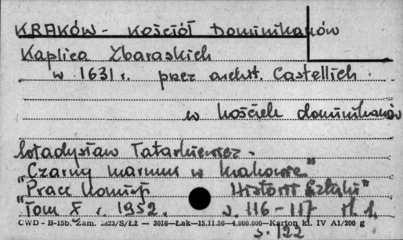 KRAKÓW - Kościół Dominikanów
Kaplica Zbaraskich
w 1631 r. przez archit. Castellich.
w kościele dominikanów
Władysław Tatarkiewicz -
"Czarny marmur w Krakowie"
"Prace Komisji Historii Sztuki"
tom X r. 1952. s. 116-117
s. 122
CWD - B-15b. Zam. S/Łż - 2016-Łak-15.11.56-4.000.000-Karton kl. IV A1/200 g